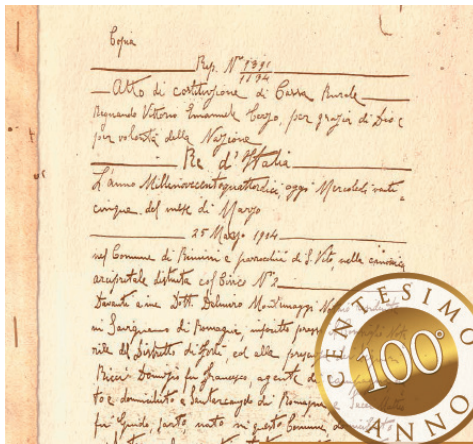 Copia
Rep. N° 1391
1194
Atto di costituzione di Cassa Rurale
Regnando Vittorio Emanuele terzo, per grazia di Dio e
per volontà della Nazione
Re d'Italia
L'anno Millenovecentoquattordici, oggi Mercoledì venti
cinque del mese di Marzo
25 Marzo 1914
nel Comune di Rimini e parrocchia di S. Vito, nella canonica
arcipretale distinta col Civico N° 2
Davanti a me Dott. Delmiro Notaro residente
in Savignano di Romagna, inscritto presso
rile del Distretto di Forlì, ed alla presenza
Ricci Domenico fu Francesco, agente di
to e domiciliato a Santarcangelo di Romagna, e Sacco
fu Guido, sarto, nato in questo Comune
CENTESIMO
100°
ANNO